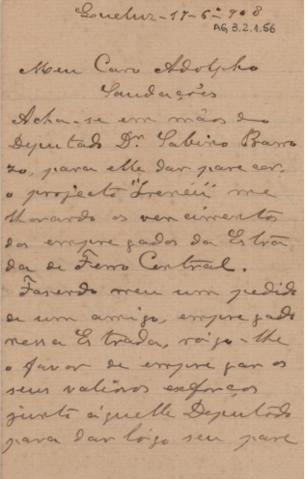 Queluz - 17-6º-908
AG 3.2.1.56
Meu Caro Adolpho
Saudações
Acha-se em mãos do
Deputado Dr. Sabino Barro
zo, para elle dar parecer,
o projecto "Irenêu" me
lhorando os vencimentos
dos empregados da Estra
da de Ferro Central.
Fazendo meu um pedido
de um amigo, empregado
nessa Estrada, rógo-lhe
o favor de empregar os
seus valiosos exforços
junto áquelle Deputado
para dar lógo seu pare